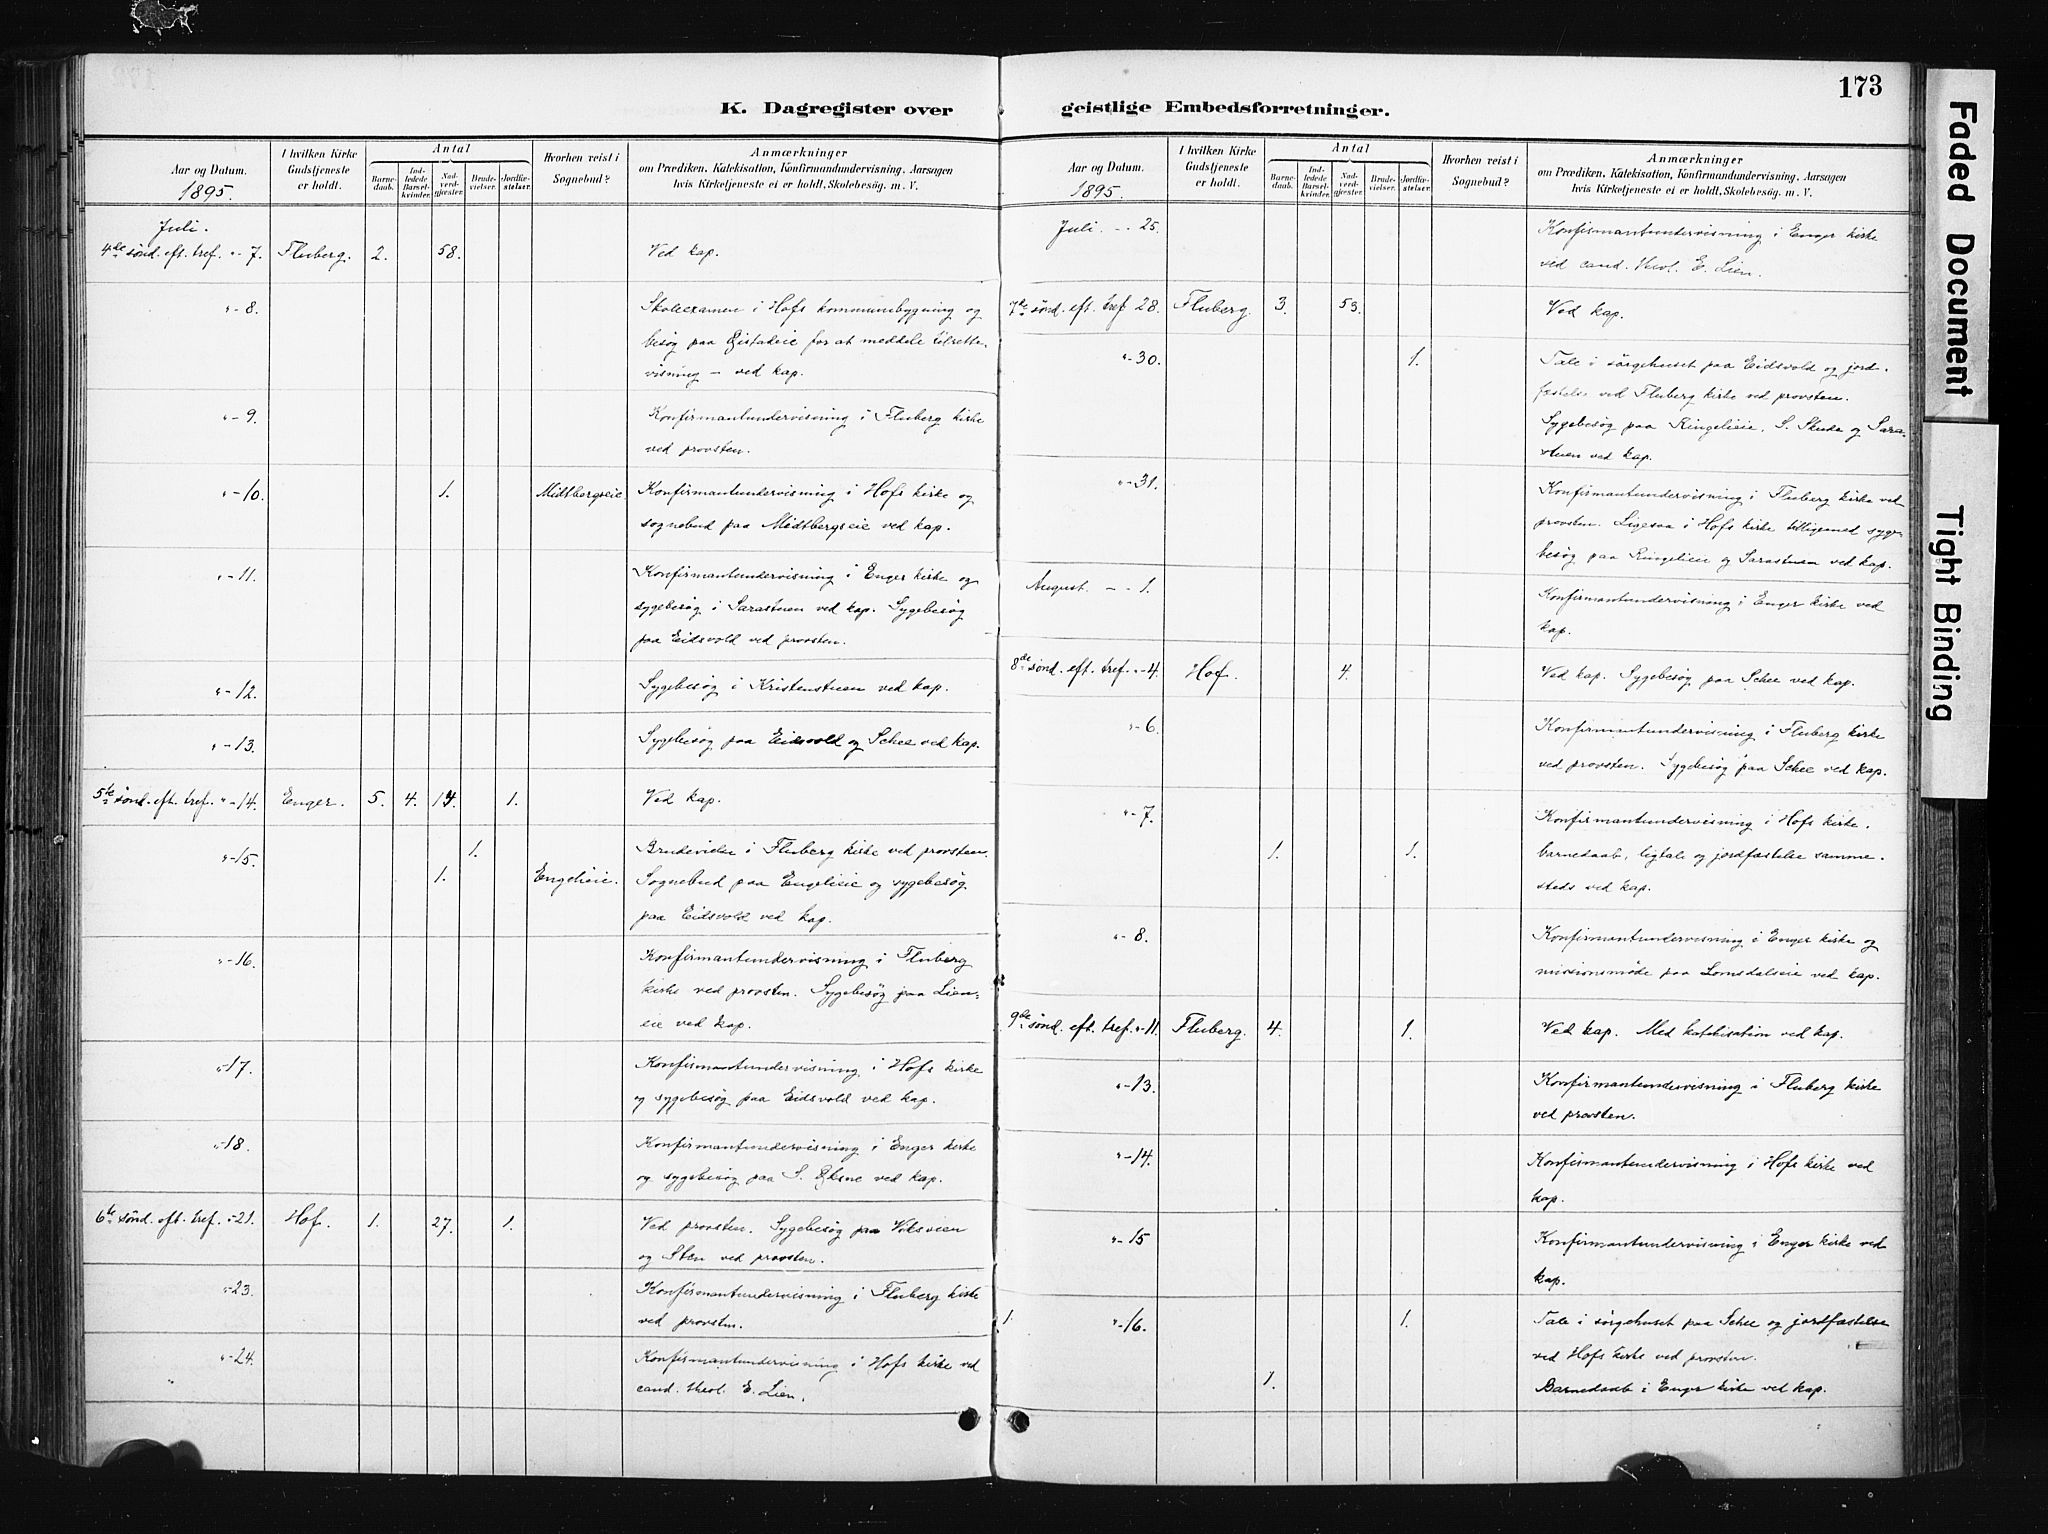 173
K. Dagregister over geistlige Embedsforretninger.
Faded Document
Tight Binding
Aar og Datum.
1895.
I hvilken Kirke Gudstjeneste er holdt.
Antal
Barnedaab.
Indledede Barselkvinder.
Nadverdgjester.
Brudevielser.
Jordfæstelser.
Hvorhen reist i Sognebud?
Anmærkninger
om Prædiken, Katekisation, Konfirmandundervisning, Aarsagen
hvis Kirketjeneste ei er holdt, Skolebesøg. m. V.
Juli.
4de sönd. eft. tref. "- 7. Fluberg. 2. 58. Ved kap.
"- 8. Skoleexamen i Hofs kommunebygning og
besög paa for at meddele tilrette-
visning - ved kap.
"- 9. Konfirmantundervisning i Fluberg kirke
ved provsten.
"- 10. 1. Midtbergseie Konfirmantundervisning i Hofs kirke og
sognebud paa Midtbergseie ved kap.
"- 11. Konfirmantundervisning i Enger kirke og
sygebesög i Sarastuen ved kap. Sygebesög
paa Eidsvold ved provsten.
"- 12. Sygebesög i Kristenstuen ved kap.
"- 13. Sygebesög paa Eidsvold og Schee ved kap.
5te sönd. eft. tref. "- 14. Enger. 5. 4. 14. 1. Ved kap.
"- 15. 1. Brudevielse i Fluberg kirke ved provsten.
1. Engelieie. Sognebud paa Engelieie og sygebesög
paa Eidsvold ved kap.
"- 16. Konfirmantundervisning i Fluberg
kirke ved provsten. Sygebesög paa Lien-
eie ved kap.
"- 17. Konfirmantundervisning i Hofs kirke
og sygebesög paa Eidsvold ved kap.
"- 18. Konfirmantundervisning i Enger kirke
og sygebesög paa S. ved kap.
6te sönd. eft. tref. "- 21. Hof. 1. 27. 1. Ved provsten. Sygebesög paa Voksvien
og Sten ved provsten.
"- 23. Konfirmantundervisning i Fluberg kirke
ved provsten.
"- 24. Konfirmantundervisning i Hofs kirke ved
cand. theol. E. Lien.
Aar og Datum.
1895.
I hvilken Kirke Gudstjeneste er holdt.
Antal
Barnedaab.
Indledede Barselkvinder.
Nadverdgjester.
Brudevielser.
Jordfæstelser.
Hvorhen reist i Sognebud?
Anmærkninger
om Prædiken, Katekisation, Konfirmandundervisning, Aarsagen
hvis Kirketjeneste ei er holdt, Skolebesøg. m. V.
Juli. - - 25. Konfirmantundervisning i Enger kirke
ved cand. theol. E. Lien.
7de sönd. eft. tref. 28. Fluberg. 3. 53. Ved kap.
"- 30. 1. Tale i sörgehuset paa Eidsvold og jord-
fæstelse ved Fluberg kirke ved provsten.
Sygebesög paa Ringelieie, S. og Sara-
stuen ved kap.
"- 31. Konfirmantundervisning i Fluberg kirke ved
provsten. Ligesaa i Hofs kirke tilligemed syge-
besög paa Ringelieie og Sarastuen ved kap.
August. - - 1. Konfirmantundervisning i Enger kirke ved
kap.
8de sönd. eft. tref. "- 4. Hof. 4. Ved kap. Sygebesög paa Schee ved kap.
"- 6. Konfirmantundervisning i Fluberg kirke
ved provsten. Sygebesög paa Schee ved kap.
"- 7. Konfirmantundervisning i Hofs kirke.
1. 1. barnedaab, ligtale og jordfæstelse samme-
steds ved kap.
"- 8. Konfirmantundervisning i Enger kirke og
missionsmöde paa Lomsdalseie ved kap.
9de sönd. eft. tref. "- 11. Fluberg. 4. 1. Ved kap. Med katekisation ved kap.
"- 13. Konfirmantundervisning i Fluberg kirke
ved provsten.
"- 14. Konfirmantundervisning i Hofs kirke ved
kap.
"- 15 Konfirmantundervisning i Enger kirke ved
kap.
1. "- 16. 1. Tale i sörgehuset paa Schee og jordfæstelse
ved Hofs kirke ved provsten.
1. Barnedaab i Enger kirke ved kap.